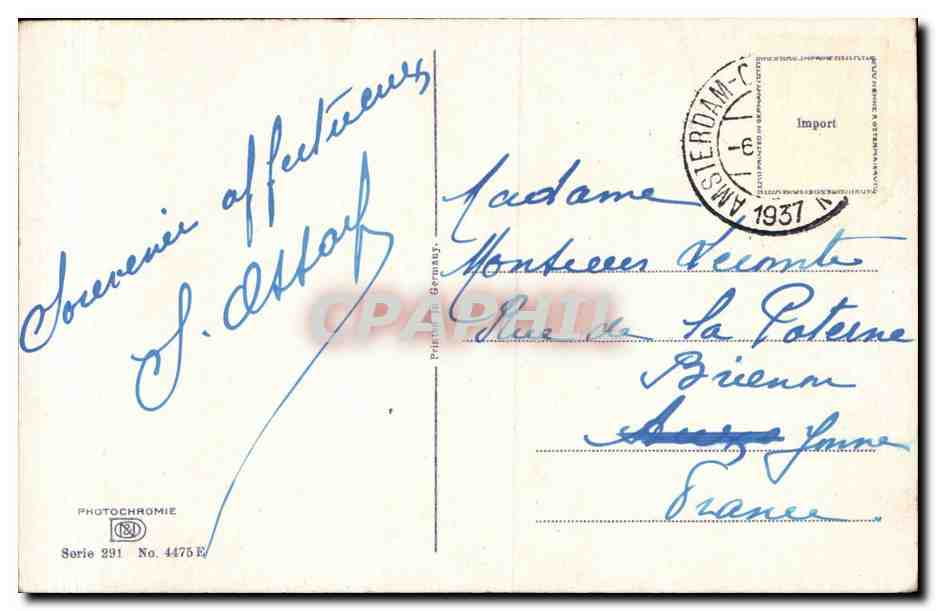 Souvenir affectueux
AMSTERDAM-C
-6
1937
N
Import
Madame
Monsieur Lecomte
Rue de la Poterne
Brienon
Yonne
France
Printed in Germany.
CPAPHIL
PHOTOCHROMIE
Serie 291 No. 4475 E